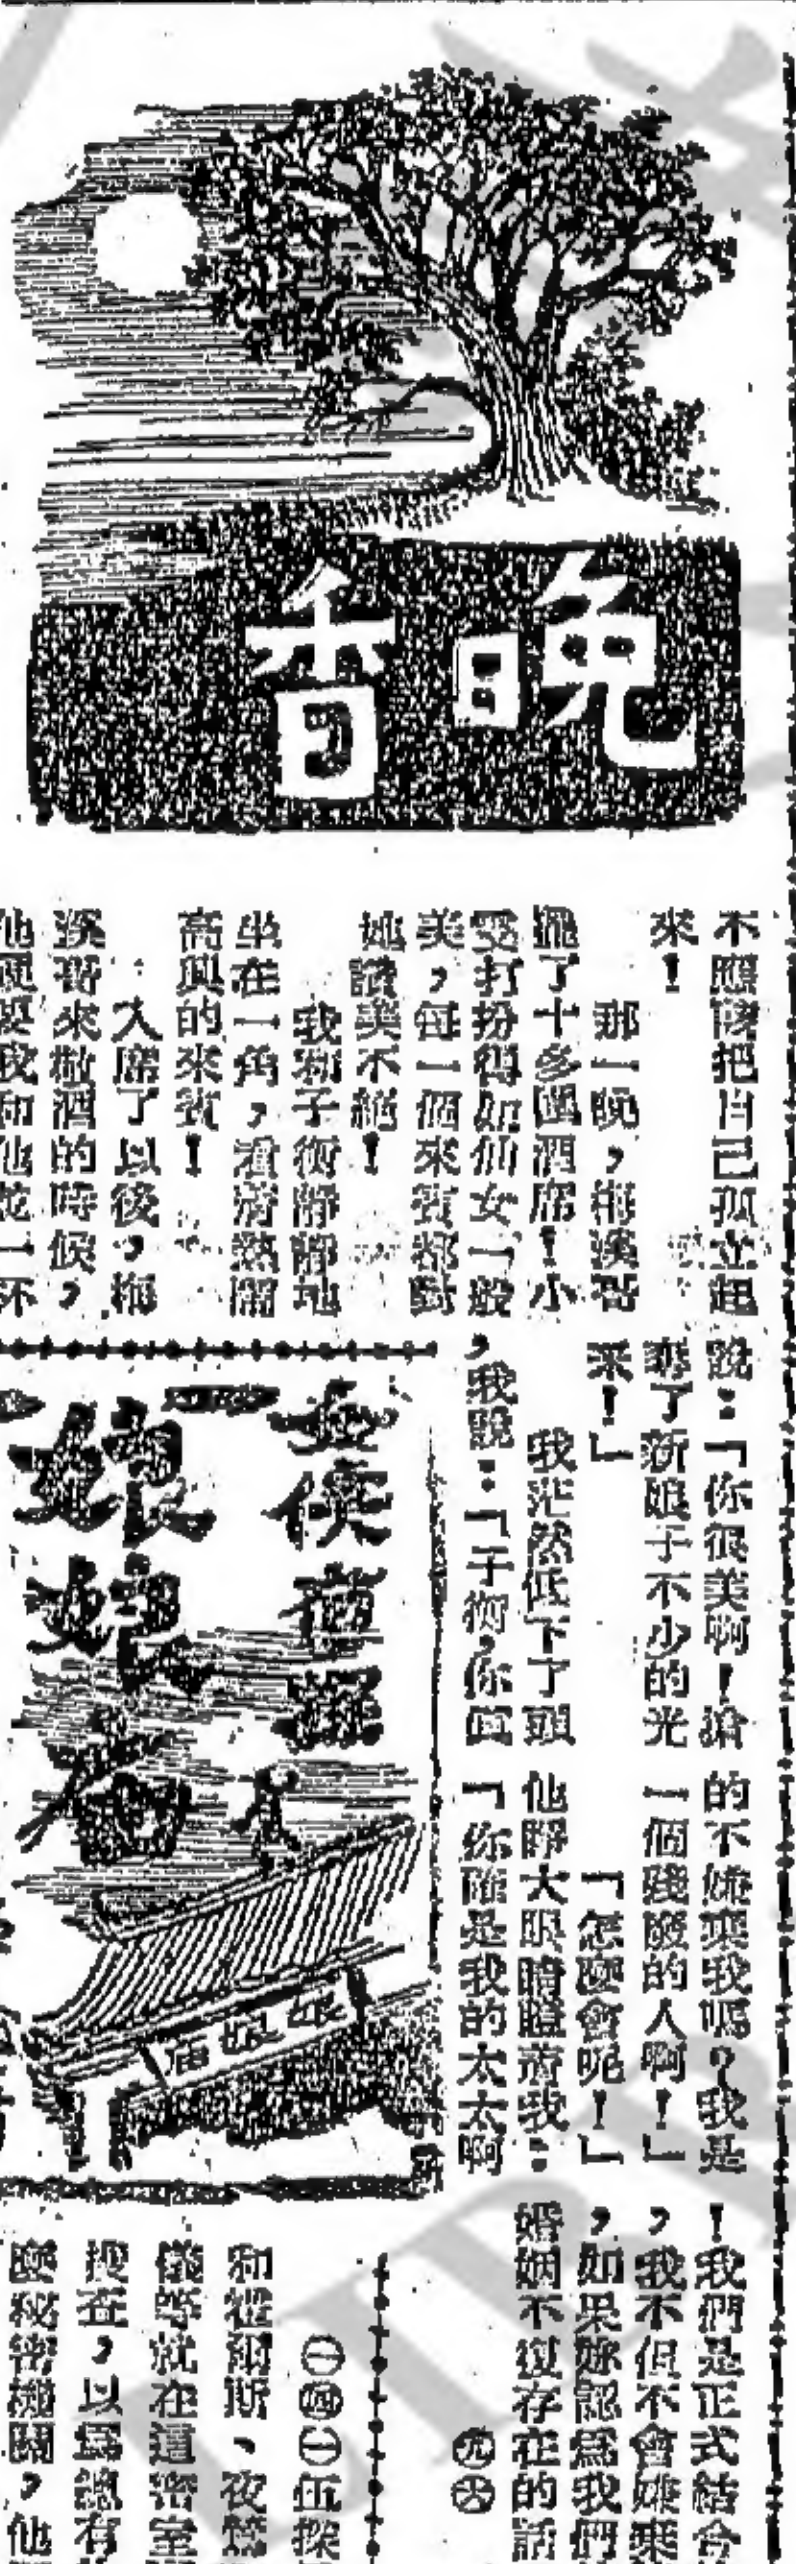 晚香
不應該把自己孤立起
來！
那一晚，梅溪哥
擺了十多圍酒席！小
雯打扮得如仙女一般
美，每一個來賓都對
她讚美不絕！
我和子衡靜靜地
坐在一角，看着熱鬧
高興的來賓！
入席了以後，梅
溪哥來敬酒的時候，
他硬要我和他乾一杯
說：「你很美啊！搶
奪了新娘子不少的光
采！」
我茫然低下了頭
，我說：「子衡，你真
的不嫌棄我嗎？我是
一個殘廢的人啊！」
「怎麼會呢！」
他睜大眼睛瞪着我：
「你確是我的太太啊
！我們是正式結合
，我不但不會嫌棄
，如果妳認為我們
婚姻不復存在的話
㊈㊅
女俠
娘娘廟
娘娘廟
㊀㊃㊀伍探
和從爾斯、夜鶯
儀等就在這密室
搜查，以為總有
麼秘密機關，他